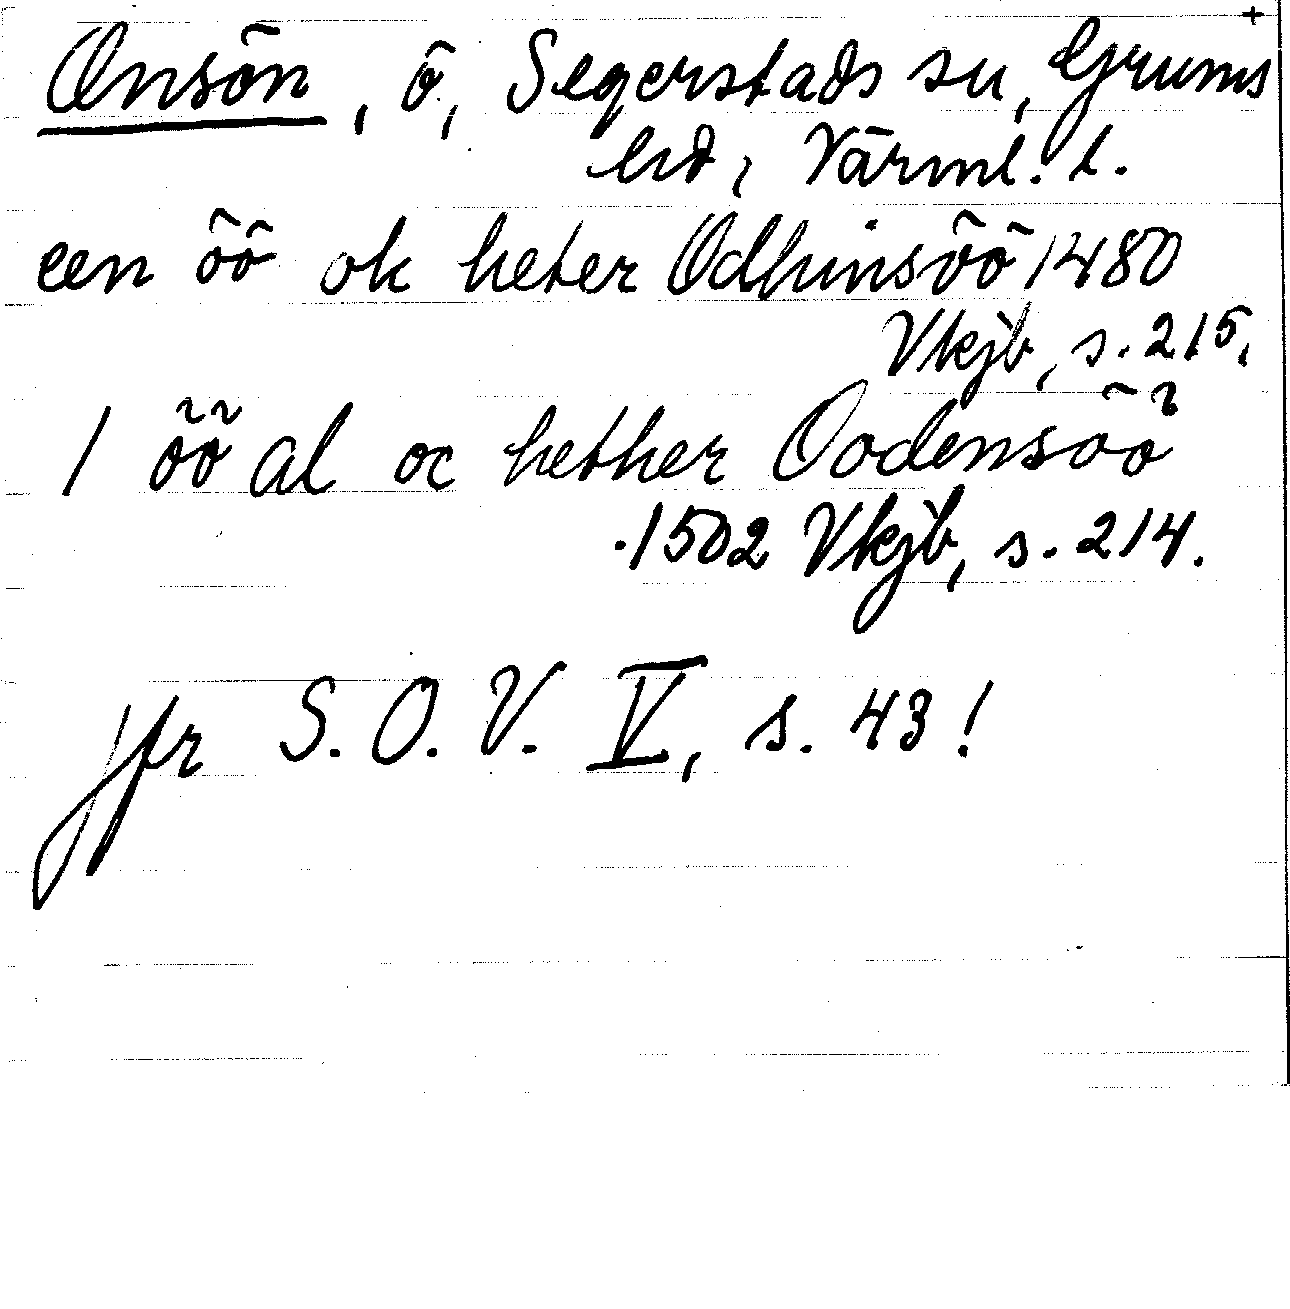 +
Onsön, ö, Segerstads sn, Grums
hd, Värml. l.
een öö ok heter Odhinsöö 1480
Vkjb, s. 215.
1 öö al oc hether Oodensöö
1502 Vkjb, s. 214.
jfr S. O. V. V, s. 43!